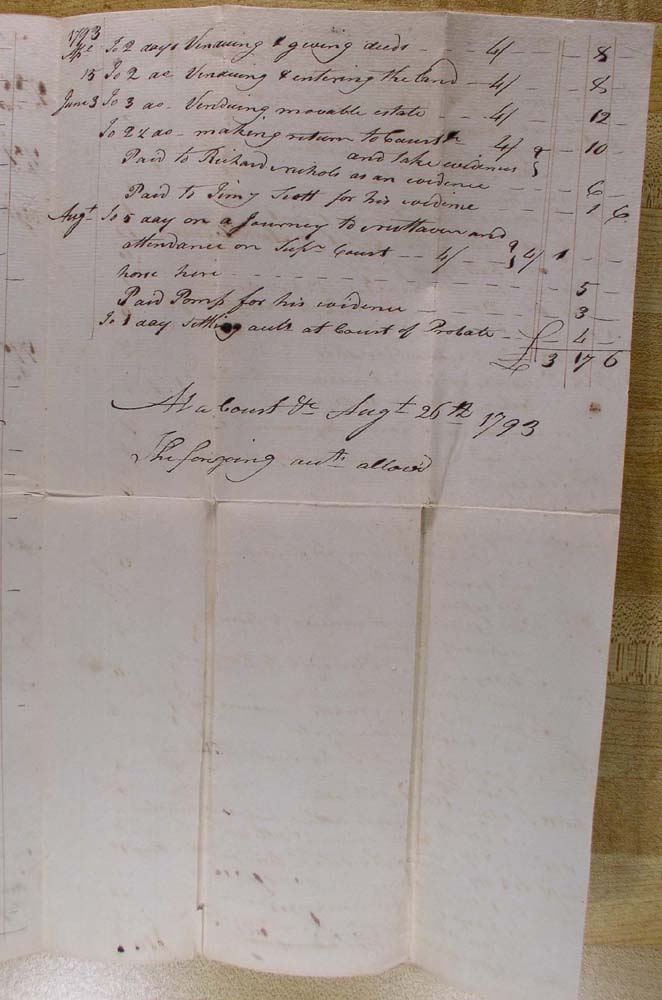 1793
To 2 days Venduing & giving deeds - - 4/ - - 8 -
15 To 2 do Venduing & entering the land - 4/ - - 8 -
June 3 To 3 do - Venduing movable estate - - 4/ - - 12 -
To 2½ do - making return to Court 4/ - - 10 -
and take evidences
Paid to Richard Nichols as an evidence - - 6 -
Paid to Jimy Scott for his evidence - - 1 6
Augt To 5 day on a Journey to Newhaven and
attendance on Supr Court - - 4/ - - 4/ 1
horse hire - - - - - - - 5 -
Paid Pomp for his evidence - - - - 3 -
To 1 day settling acts at Court of Probate - - 4 -
£ 3 17 6
At a Court &c Augt 26th 1793
The foregoing acts allow'd